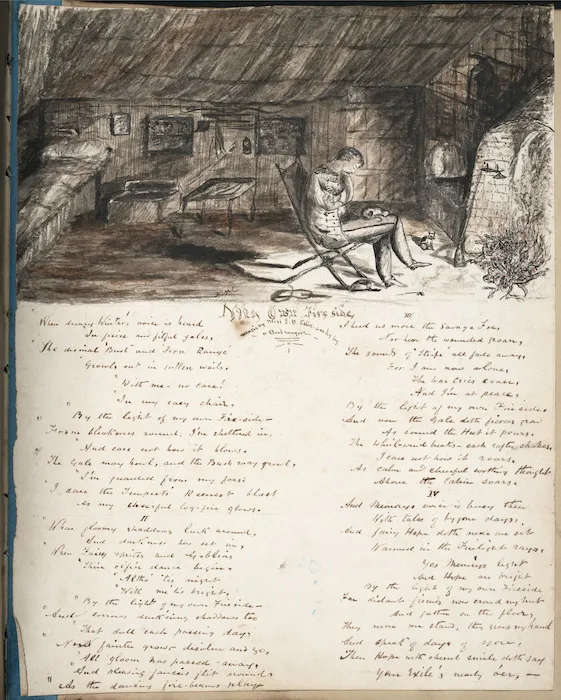 My Own Fireside,
music by Miss S. D. words by
a Bushranger
When dreary Winter's voice is heard
In fierce and fitful gales,
The dismal Bush and Iron Range
Growls out in sullen wails,
With me no care!
In my easy chair,
By the light of my own Fireside
From blackness round, I'm sheltered in,
And care not how it blows.
The Gale may howl, and the Bush may growl,
I'm guarded from my foes:
I dare the Tempest's Keenest blast
As my cheerful log-fire glows.
II
When gloomy shadows lurk around,
And darkness has set in,
When Fairy sprites and Goblins
Their elfin dance begin,
Altho' 'tis night
With me 'tis bright,
By the light of my own Fireside
And sorrows darkening shadows too
That dull each passing day,
Now fainter grows dissolve and go,
All gloom has passed away,
And pleasing fancies flit around
As the dancing fire-beams play
III
I heed no more the Savage Foe,
Nor hear the wounded groan,
The sounds of Strife all fade away,
For I am now alone,
The War Cries cease,
And I'm at peace,
By the light of my own Fireside.
And now the Gale doth fiercer grow
As round the Hut it pours.
The Whirlwind beats each rafter shakes,
I care not how it roars,
As calm and cheerful soothing thought
Above the Cabin soars.
IV
And Memory's voice is busy then
With tales of bygone days,
And fairy Hope doth near me sit
Warmed in the Firelight rays,
Yes Memory's light
And Hope are bright
By the light of my own Fireside
Far distant friends now crowd my hut
And gather on the floor,
They near me stand, they grasp my hand
And speak of days of yore,
Then Hope with cheerful smile doth say
Your Exile is nearly o'er,